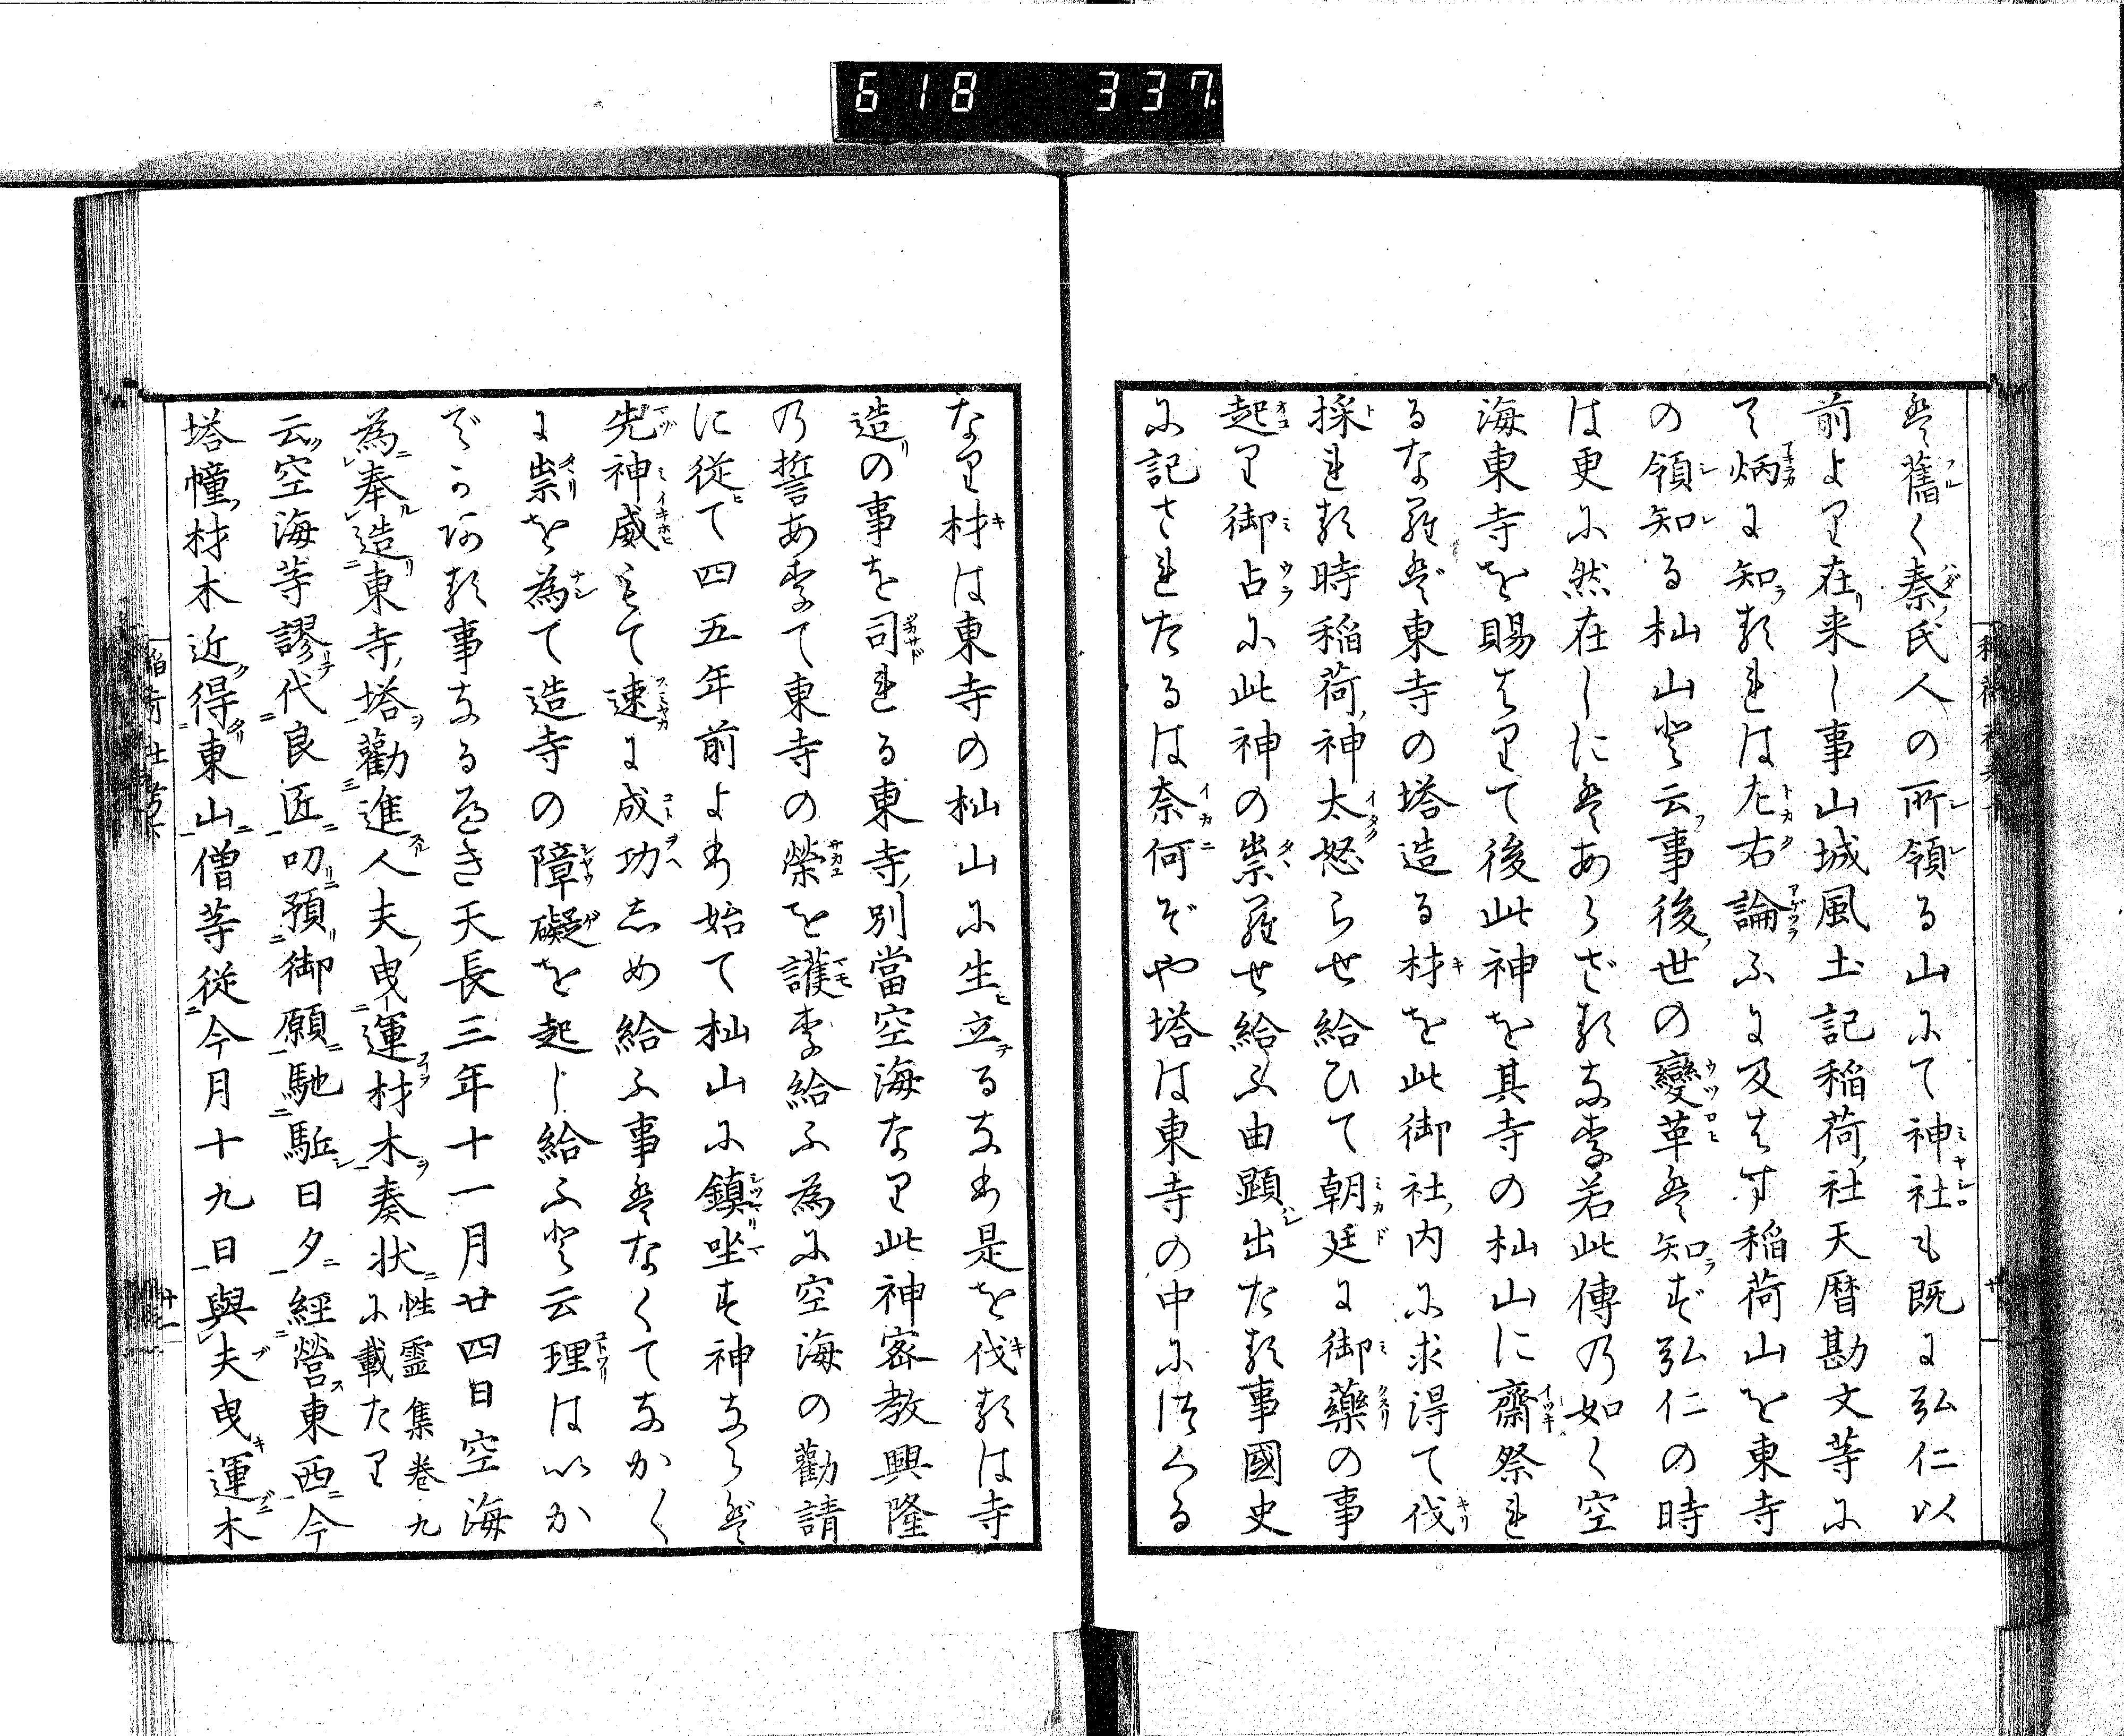 618 337
は舊く秦氏人の所領る山にて神社も既に弘仁以
前より在来し事山城風土記稲荷社天暦勘文等に
て炳に知られは左右論ふに及はす稲荷山を東寺
の領知る杣山と云事後世の變革は知らず弘仁の時
は更に然在しにはあらざるなり若此傳の如く空
海東寺を賜はりて後此神を其寺の杣山に齋祭れ
るならば東寺の塔造る材を此御社内に求得て伐
採れる時稲荷神太怒らせ給ひて朝廷に御藥の事
起り御占に此神の祟らせ給ふ由顕出たる事國史
に記されたるは奈何ぞや塔は東寺の中につくる
なり材は東寺の杣山に生立るなり是を伐るは寺
造の事を司れる東寺別當空海なり此神密教興隆
の誓ありて東寺の榮を護り給ふ為に空海の勸請
に従て四五年前より始て杣山に鎮坐す神ならば
先神威もて速に成功しめ給ふ事はなくてなかく
に祟を為て造寺の障礙を起し給ふと云理はいか
でかある事なるべき天長三年十一月廿四日空海
為奉造東寺塔勸進人夫曳運材木奏状に載たり
性霊集巻九
云空海等謬代良匠叨預御願馳䭾日夕經營東西今
塔幢材木近得東山僧等従今月十九日與夫曳運木
稲荷社考下
廿一